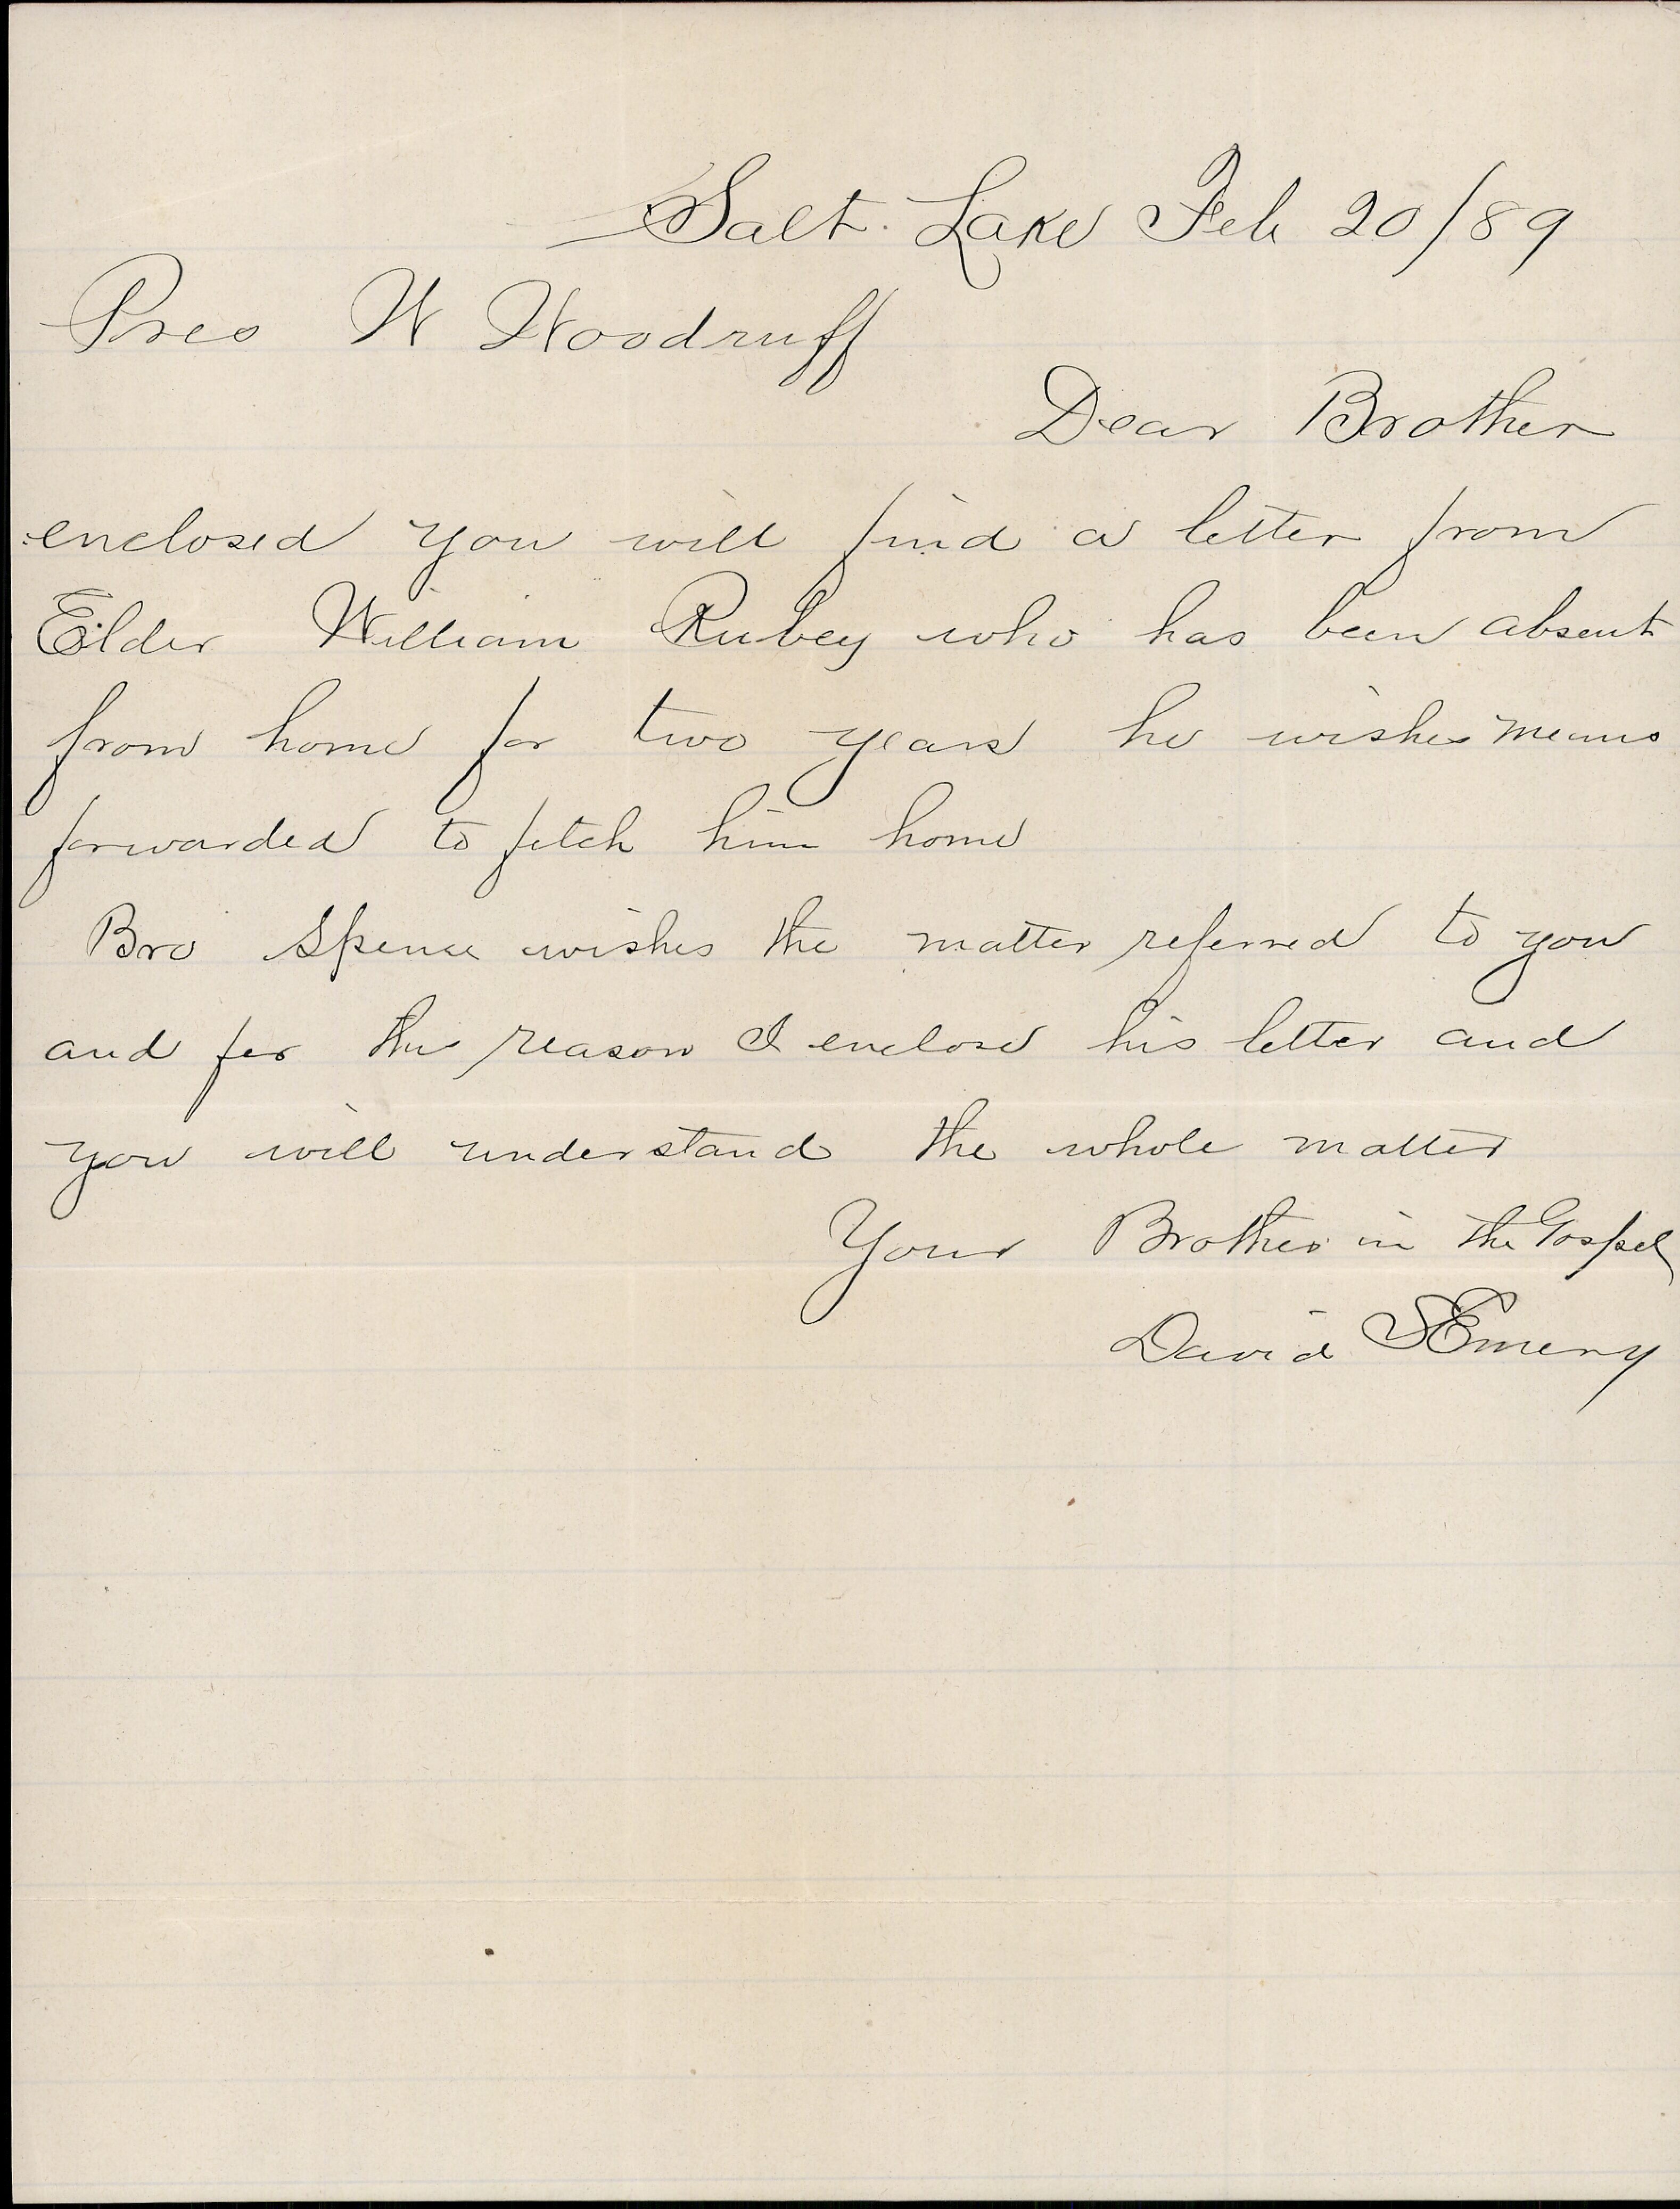 Salt Lake Feb 20/89
Pres W Woodruff
Dear Brother
enclosed you will find a letter from
Elder William Rubey who has been absent
from home for two years he wishes means
forwarded to fetch him home
Bro Spence wishes the matter referred to you
and for this reason I enclose his letter and
you will understand the whole matter
Your Brother in the Gospel
David S Emery